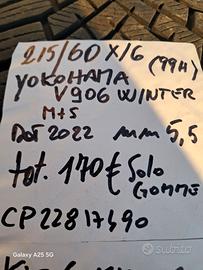 215/60 X/6 (99H)
YOKOHAMA
V906 WINTER
M+S
DOT 2022 mm 5,5
tot. 170€ Solo
GOMME
CP22817490
Galaxy A25 5G
subito